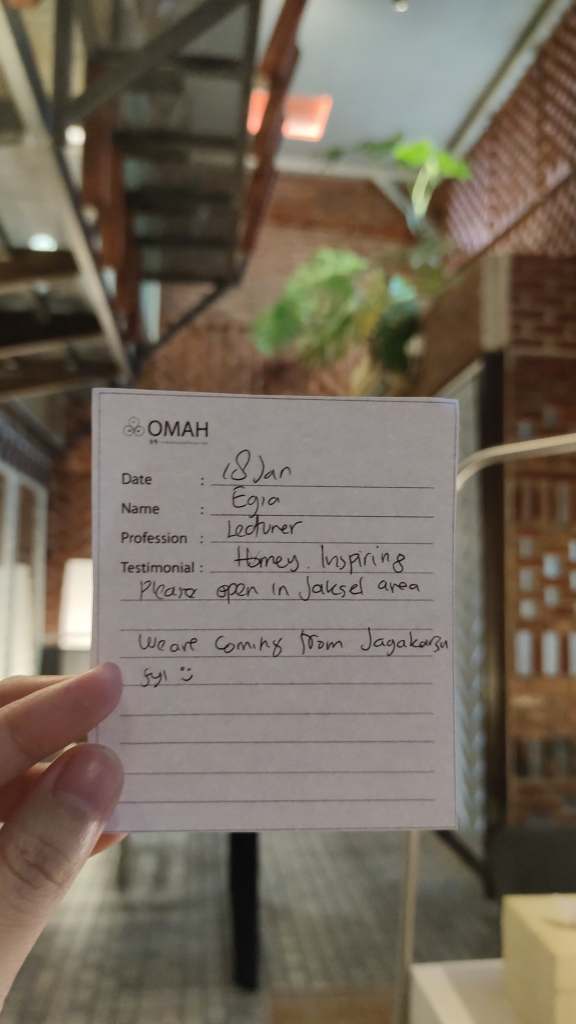 OMAH
Date : 18 Jan
Name : Egia
Profession : Lecturer
Testimonial : Homey. Inspiring
Please open in Jaksel area
We are coming from Jagakarsa
fyi :)